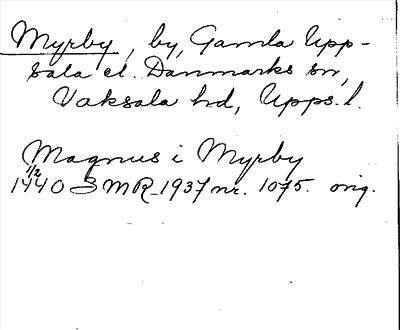 Myrby, by, Gamla Upp-
sala el. Danmarks sn,
Vaksala hd, Upps. l.
Magnus i Myrby
1/2
1440 SMR 1937 nr. 1075. orig.